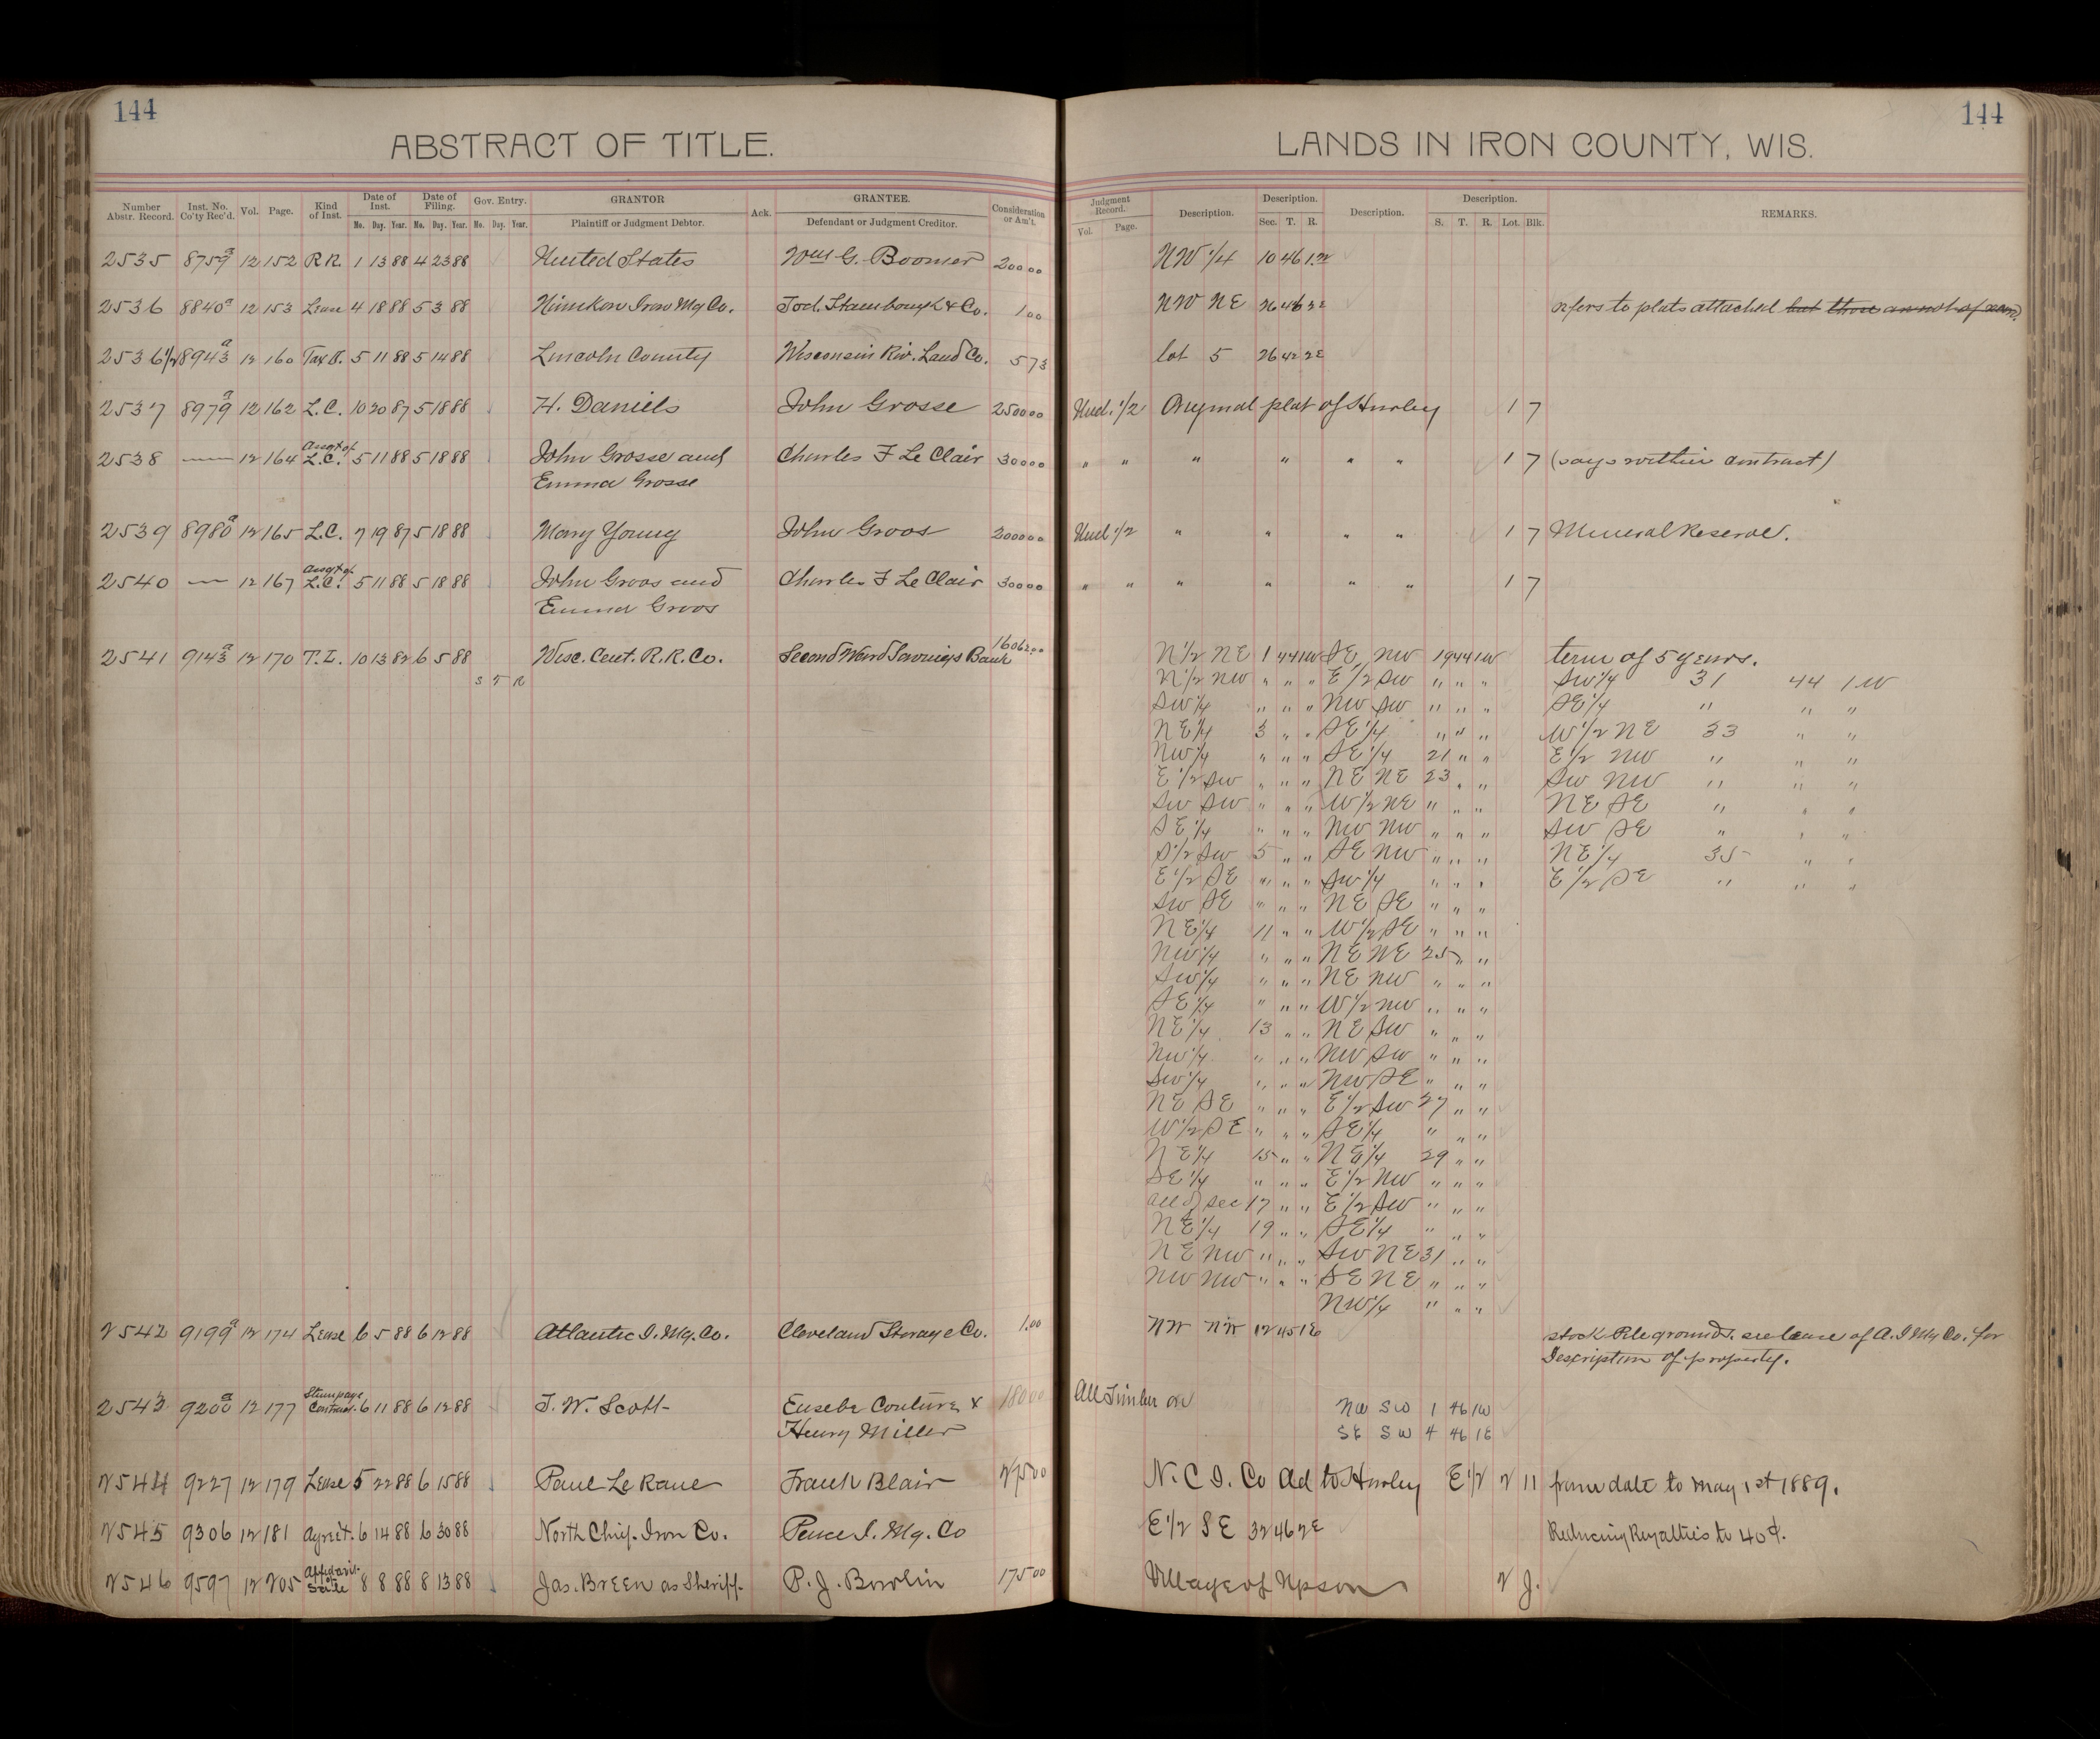 144
ABSTRACT OF TITLE.
Number Abstr. Record. Inst. No. Co'ty Rec'd. Vol. Page. Kind of Inst. Date of Inst. Mo. Day. Year. Date of Filing. Mo. Day. Year. Gov. Entry. Mo. Day. Year. GRANTOR Plaintiff or Judgment Debtor. Ack. GRANTEE. Defendant or Judgment Creditor. Consideration or Am't.
2535 8759a 12 152 R.R. 1 13 88 4 23 88 United States Wm G. Boomer 200 00
2536 8840a 12 153 Lease 4 18 88 5 3 88 Nimikon Iron Mg Co. Tod. Stambough & Co. 1 00
2536 1/2 8943a 12 160 Tax D. 5 11 88 5 14 88 Lincoln County Wisconsin Riv. Land Co. 5 73
2537 8979a 12 162 L.C. 10 20 87 5 18 88 H. Daniels John Grosse 2500 00
2538 — 12 164 Asgt of L.C. 5 11 88 5 18 88 John Grosse and Charles F Le Clair 300 00
Emma Grosse
2539 8980a 12 165 L.C. 7 19 87 5 18 88 Mary Young John Groos 2000 00
2540 — 12 167 Asgt of L.C. 5 11 88 5 18 88 John Groos and Charles F Le Clair 300 00
Emma Groos
2541 9143a 12 170 T.L. 10 13 82 6 5 88 Wisc. Cent. R.R. Co. Second Ward Savings Bank 16062 00
S T R
2542 9199a 12 174 Lease 6 5 88 6 12 88 Atlantic I. Mg. Co. Cleveland Storage Co. 1.00
2543 9200a 12 177 Stumpage Contract. 6 11 88 6 12 88 J. W. Scott Eusebe Couture & 180 00
Henry Miller
2544 9227 12 179 Lease 5 22 88 6 15 88 Paul Le Rane Frank Blair 275 00
2545 9306 12 181 Agreet. 6 14 88 6 30 88 North Chip. Iron Co. Pence I. Mg. Co
2546 9597 12 205 Affidavit of Sale 8 8 88 8 13 88 Jas. Breen as Sheriff. P. J. Bowlin 175 00
144
LANDS IN IRON COUNTY, WIS.
Judgment Record. Vol. Page. Description. Description. Sec. T. R. Description. Description. S. T. R. Lot. Blk. REMARKS.
NW 1/4 10 46 1 W
NW NE 26 46 2 E refers to plats attached but those are not of record.
lot 5 26 42 2 E
Und. 1/2 Original plat of Hurley 1 7
" " " " " " 1 7 (says within contract)
Und 1/2 " " " " 1 7 Mineral Reserve.
" " " " " " 1 7
N 1/2 NE 1 44 1W SE NW 19 44 1W term of 5 years.
N 1/2 NW " " " E 1/2 SW " " " SW 1/4 31 44 1 W
SW 1/4 " " " NW SW " " " SE 1/4 " " "
NE 1/4 3 " " SE 1/4 " " " W 1/2 NE 33 " "
NW 1/4 " " " SE 1/4 21 " " E 1/2 NW " " "
E 1/2 SW " " " NE NE 23 " " SW NW " " "
SW SW " " " W 1/2 NE " " " NE SE " " "
SE 1/4 " " " NW NW " " " SW SE " " "
S 1/2 SW 5 " " SE NW " " " NE 1/4 35 " "
E 1/2 SE " " " SW 1/4 " " " E 1/2 SE " " "
SW SE " " " NE SE " " "
NE 1/4 11 " " W 1/2 SE " " "
NW 1/4 " " " NE NE 25 " "
SW 1/4 " " " NE NW " " "
SE 1/4 " " " W 1/2 NW " " "
NE 1/4 13 " " NE SW " " "
NW 1/4 " " " NW SW " " "
SW 1/4 " " " NW SE " " "
NE SE " " " E 1/2 SW 27 " "
W 1/2 SE " " " SE 1/4 " " "
NE 1/4 15 " " NE 1/4 29 " "
SE 1/4 " " " E 1/2 NW " " "
all of sec 17 " " E 1/2 SW " " "
NE 1/4 19 " " SE 1/4 " " "
NE NW " " " SW NE 31 " "
NW NW " " " SE NE " " "
NW 1/4 " " "
NW NW 12 45 1E stock Pile grounds. see lease of A. I Mg Co. for
Description of property.
All Timber on NW SW 1 46 1W
SE SW 4 46 1E
N. C I. Co Ad to Hurley E 1/2 2 11 from date to May 1st 1889.
E 1/2 SE 32 46 2E Reducing Royalties to 40¢.
Village of Upson 2 J.